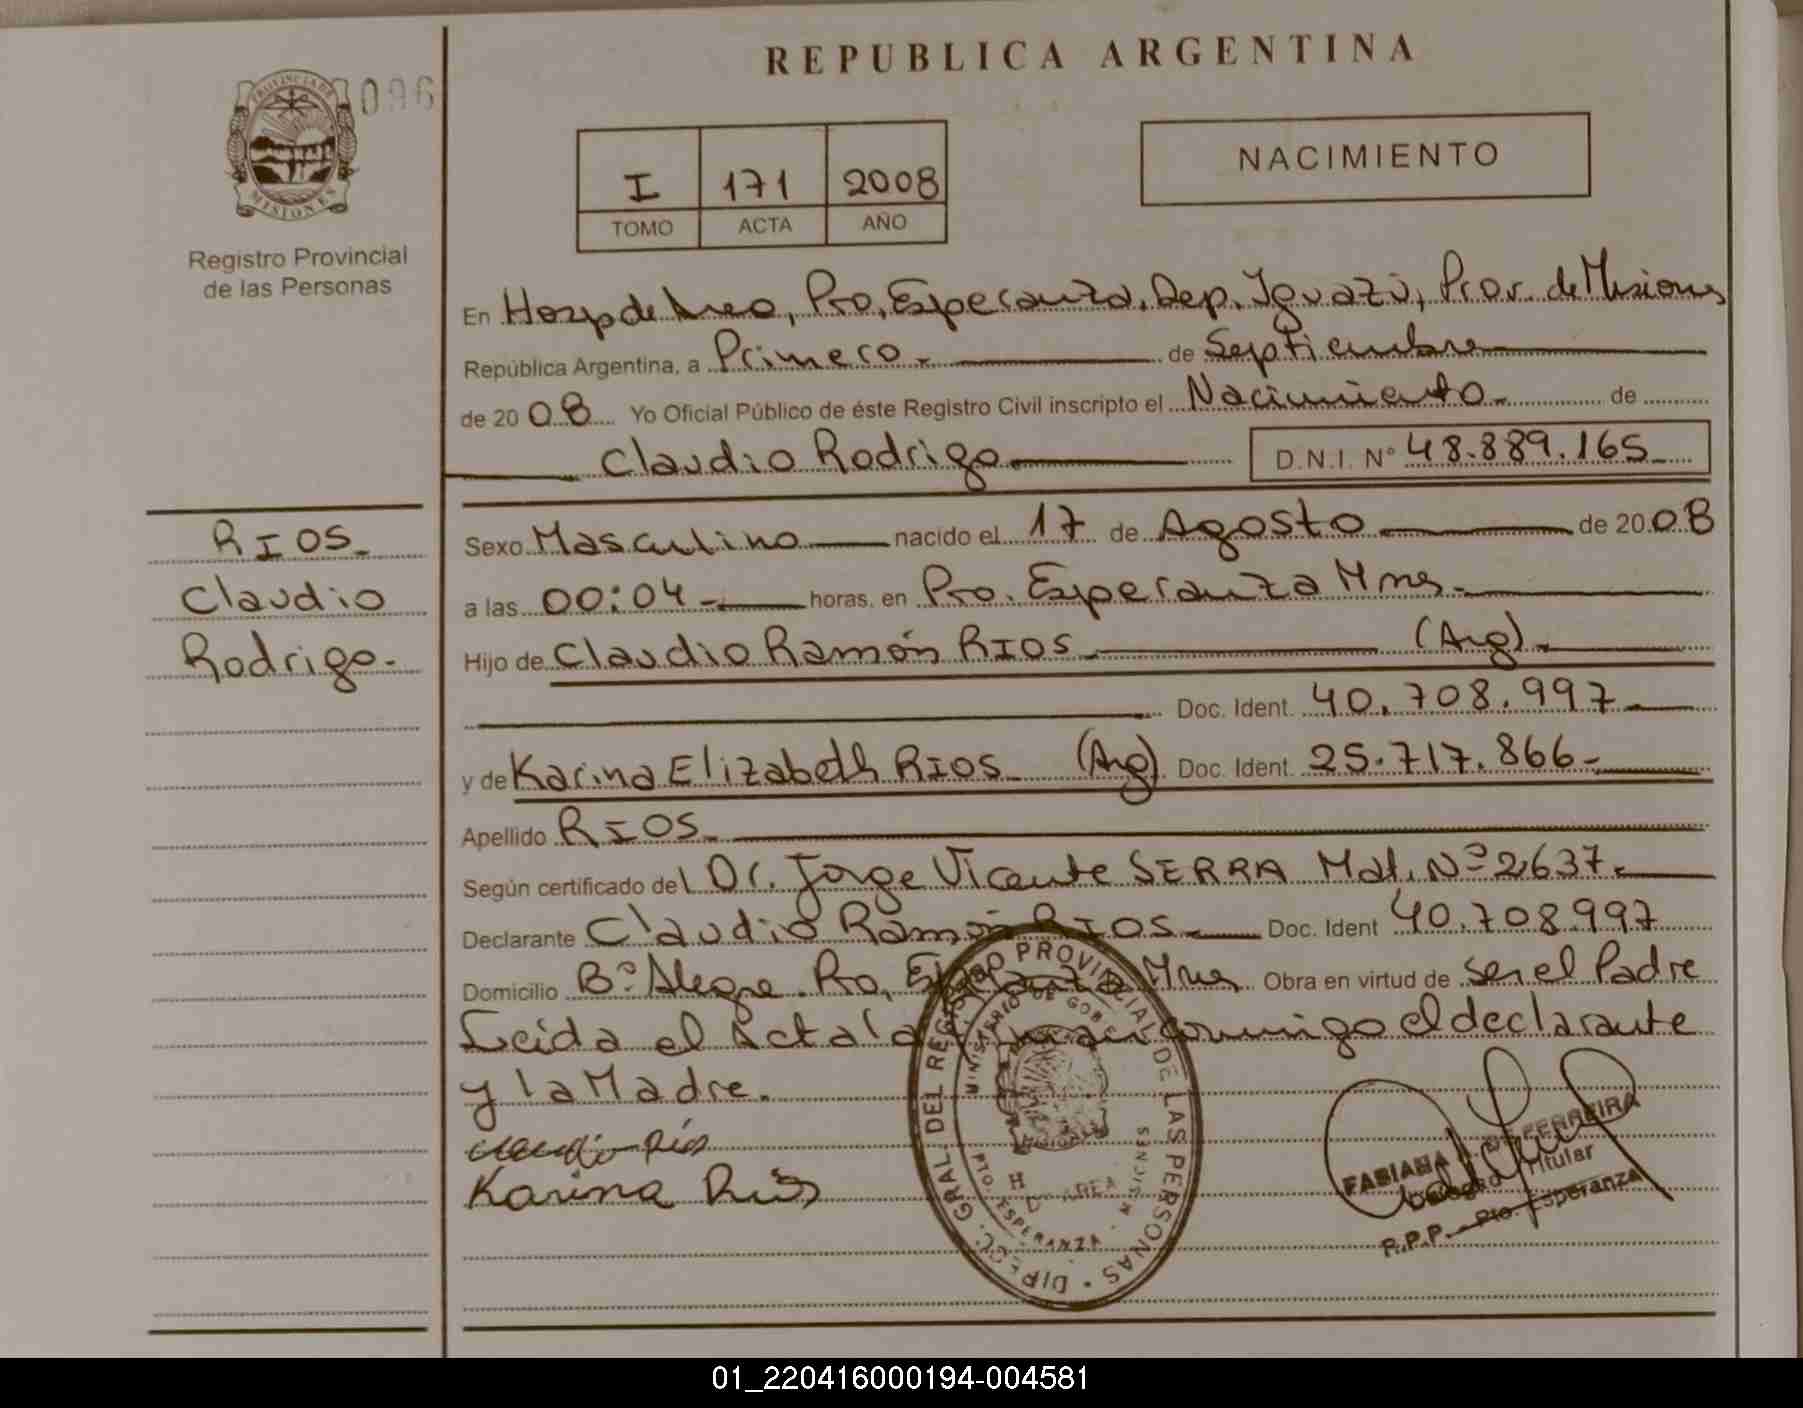 REPUBLICA ARGENTINA
PROVINCIA DE
MISIONES
096
Registro Provincial
de las Personas
I 171 2008
TOMO ACTA AÑO
NACIMIENTO
En Hosp de Area, Pto, Esperanza, Dep. Iguazú, Prov. de Misiones
República Argentina, a Primero.- de Septiembre
de 2008 Yo Oficial Público de éste Registro Civil inscripto el Nacimiento.- de
Claudio Rodrigo.- D.N.I. N° 48.889.165
RIOS.-
Claudio
Rodrigo.-
Sexo Masculino nacido el 17 de Agosto de 2008
a las 00:04.- horas, en Pto. Esperanza Mnes.-
Hijo de Claudio Ramón RIOS.- (Arg).-
Doc. Ident. 40.708.997.-
y de Karina Elizabeth RIOS.- (Arg). Doc. Ident. 25.717.866.-
Apellido RIOS.-
Según certificado del Dr. Jorge Vicente SERRA Mat. N° 2637.-
Declarante Claudio Ramón RIOS.- Doc. Ident 40.708.997
Domicilio B° Alegre. Pto, Esperanza Mnes Obra en virtud de ser el Padre
Leida el Acta la conmigo el declarante
y la Madre.
Claudio Ríos
Karina Ríos
DIRECC. GRAL. DEL REGISTRO PROVINCIAL DE LAS PERSONAS
MINISTERIO DE GOB
PTO. ESPERANZA - MISIONES
FABIANA DE FERREIRA
Titular
R.P.P. - Pto. Esperanza
01_220416000194-004581